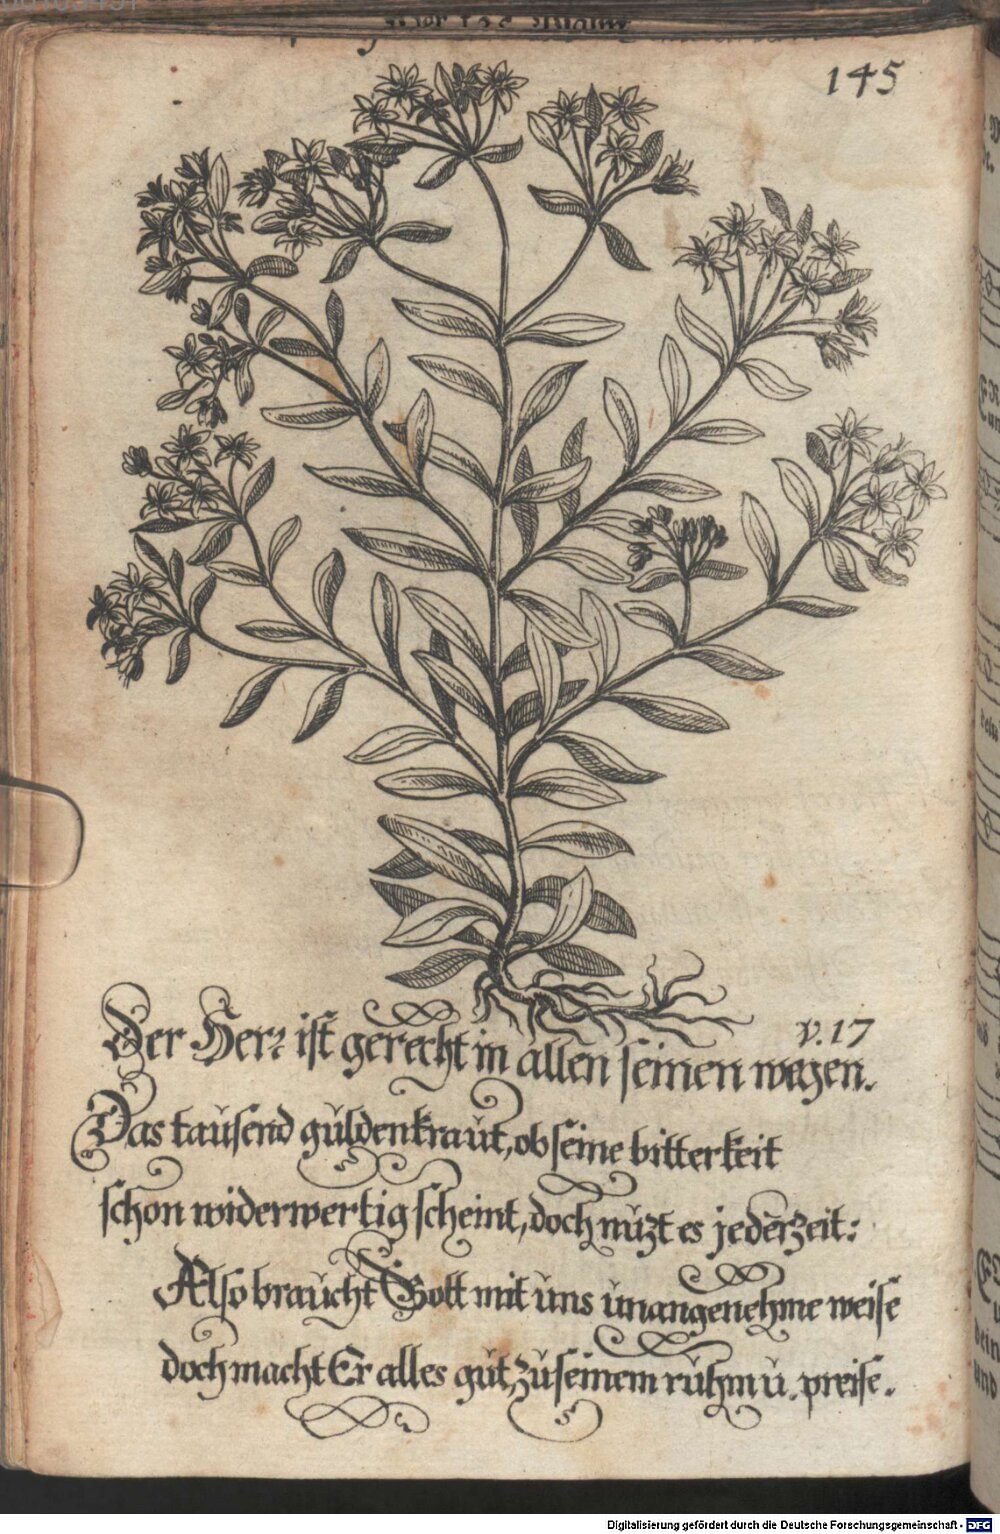 145
v. 17
Der Herr ist gerecht in allen seinen wegen.
Das tausend guldenkraut, ob seine bitterkeit
schon widerwertig scheint, doch nuzt es jederzeit:
Also braucht Gott mit uns unangenehme weise
doch macht Er alles gut, zu seinem ruhm u. preise.
Digitalisierung gefördert durch die Deutsche Forschungsgemeinschaft - DFG